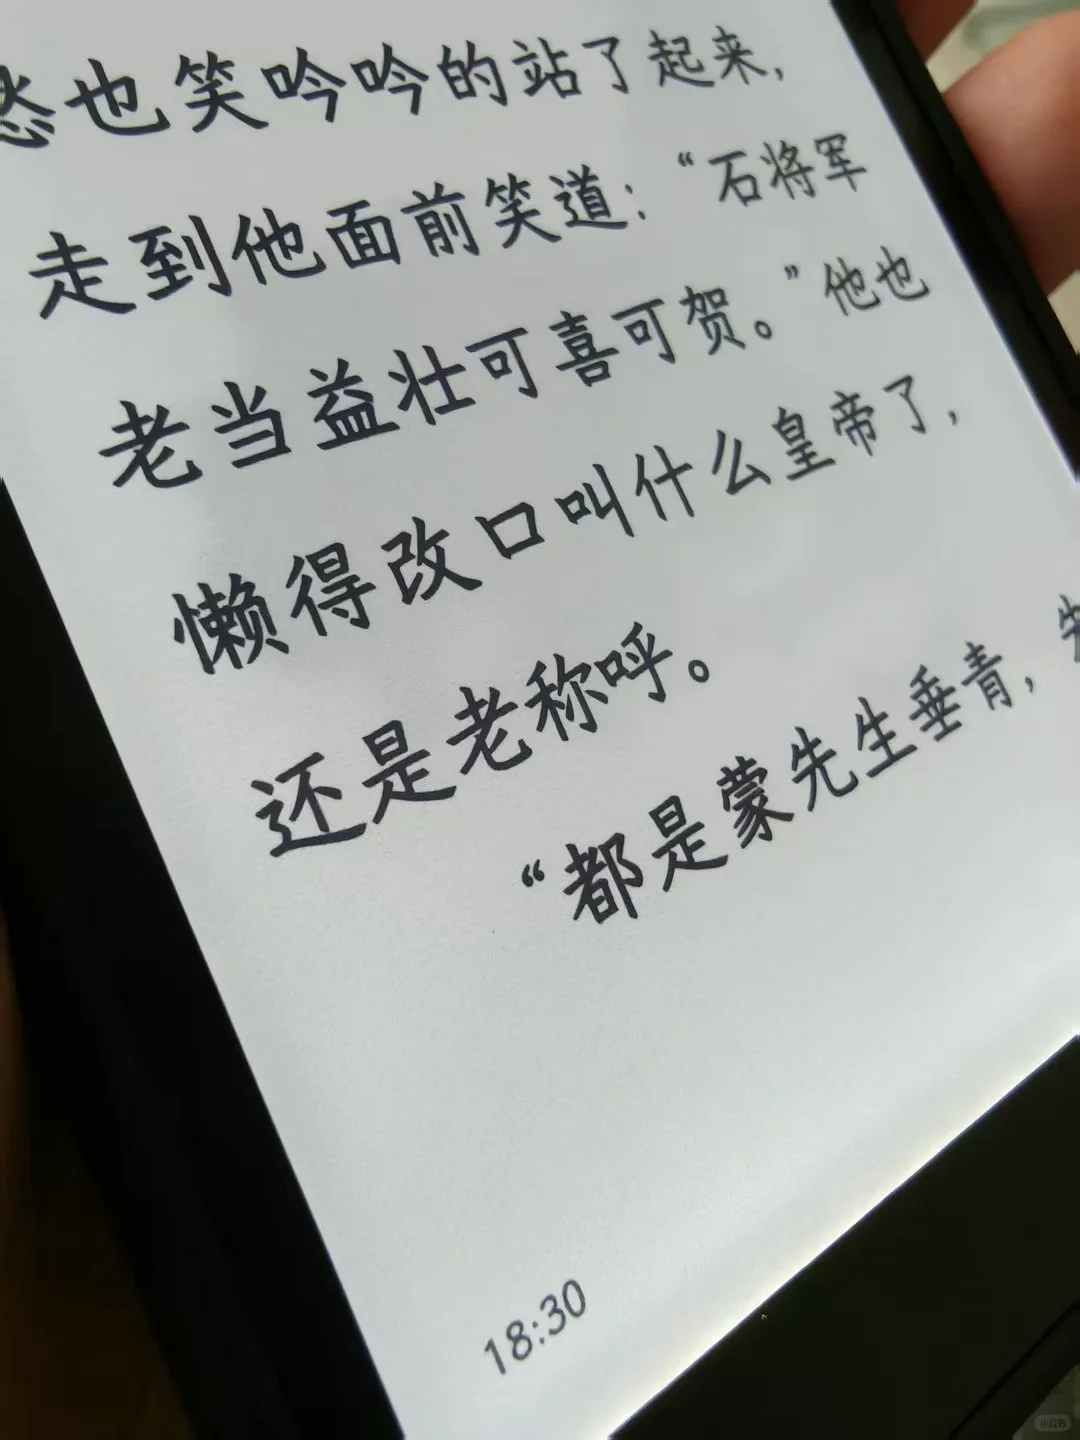 愁也笑吟吟的站了起来,
走到他面前笑道:“石将军
老当益壮可喜可贺。”他也
懒得改口叫什么皇帝了,
还是老称呼。
“都是蒙先生垂青,
18:30
小红书